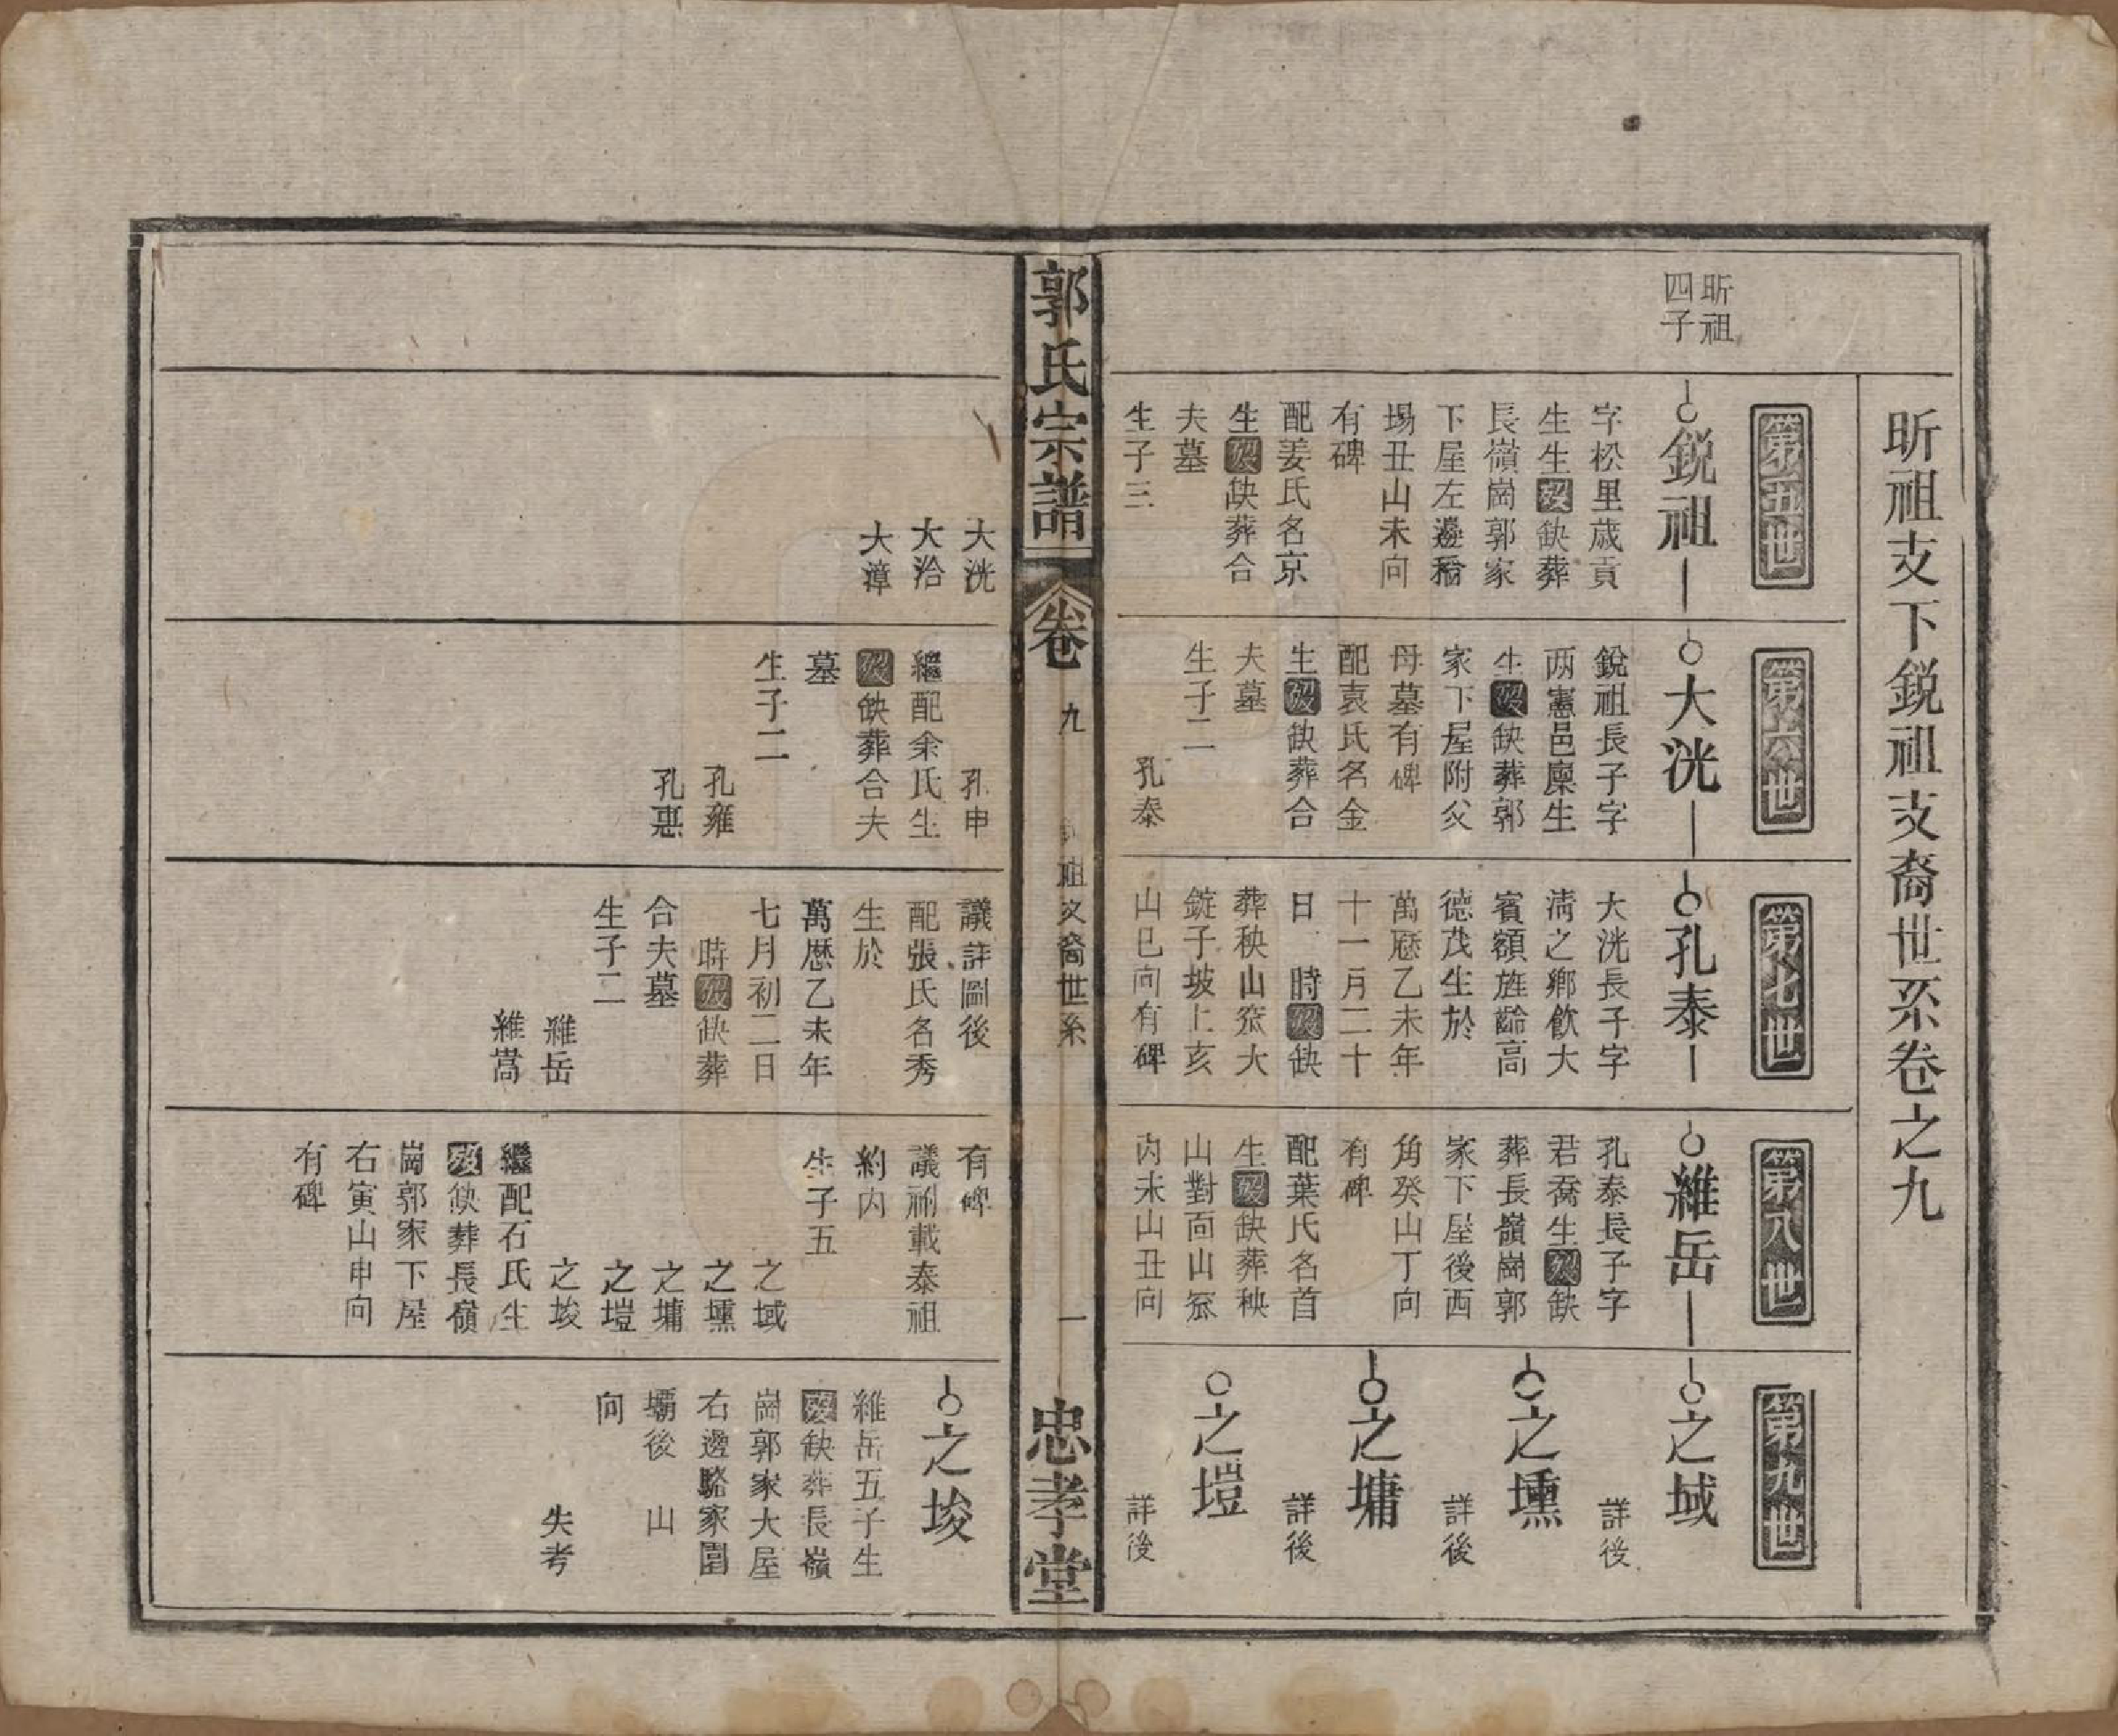 昕祖支下鋭祖支裔世系卷之九
昕祖
四子
第五世
鋭祖
字松里歲貢
生生歿缺葬
長嶺崗郭家
下屋左邊稻
場丑山未向
有碑
配姜氏名京
生歿缺葬合
夫墓
生子三
大洸
大治
大漳
第六世
大洸
鋭祖長子字
两憲邑廩生
生歿缺葬郭
家下屋附父
母墓有碑
配袁氏名金
生歿缺葬合
夫墓
生子二
孔泰
孔申
繼配余氏生
歿缺葬合夫
墓
生子二
孔雍
孔惠
第七世
孔泰
大洸長子字
淸之鄉飲大
賓額旌齡高
德茂生於
萬歴乙未年
十一月二十
日 時歿缺
葬秧山窊大
錠子坡上亥
山巳向有碑
議註圖後
配張氏名秀
生於
萬歷乙未年
七月初二日
時歿缺葬
合夫墓
生子二
維岳
維嵩
第八世
維岳
孔泰長子字
君喬生歿缺
葬長嶺崗郭
家下屋後西
角癸山丁向
有碑
配葉氏名首
生歿缺葬秧
山對面山窊
内未山丑向
有碑
議祔載泰祖
約内
生子五
之域
之壎
之墉
之塏
之埈
繼配石氏生
歿缺葬長嶺
崗郭家下屋
右寅山申向
有碑
第九世
之域
詳後
之壎
詳後
之墉
詳後
之塏
詳後
之埈
維岳五子生
歿缺葬長嶺
崗郭家大屋
右邊駱家園
壩後 山
向
失考
郭氏宗譜
卷九
祖支裔世系
一
忠孝堂